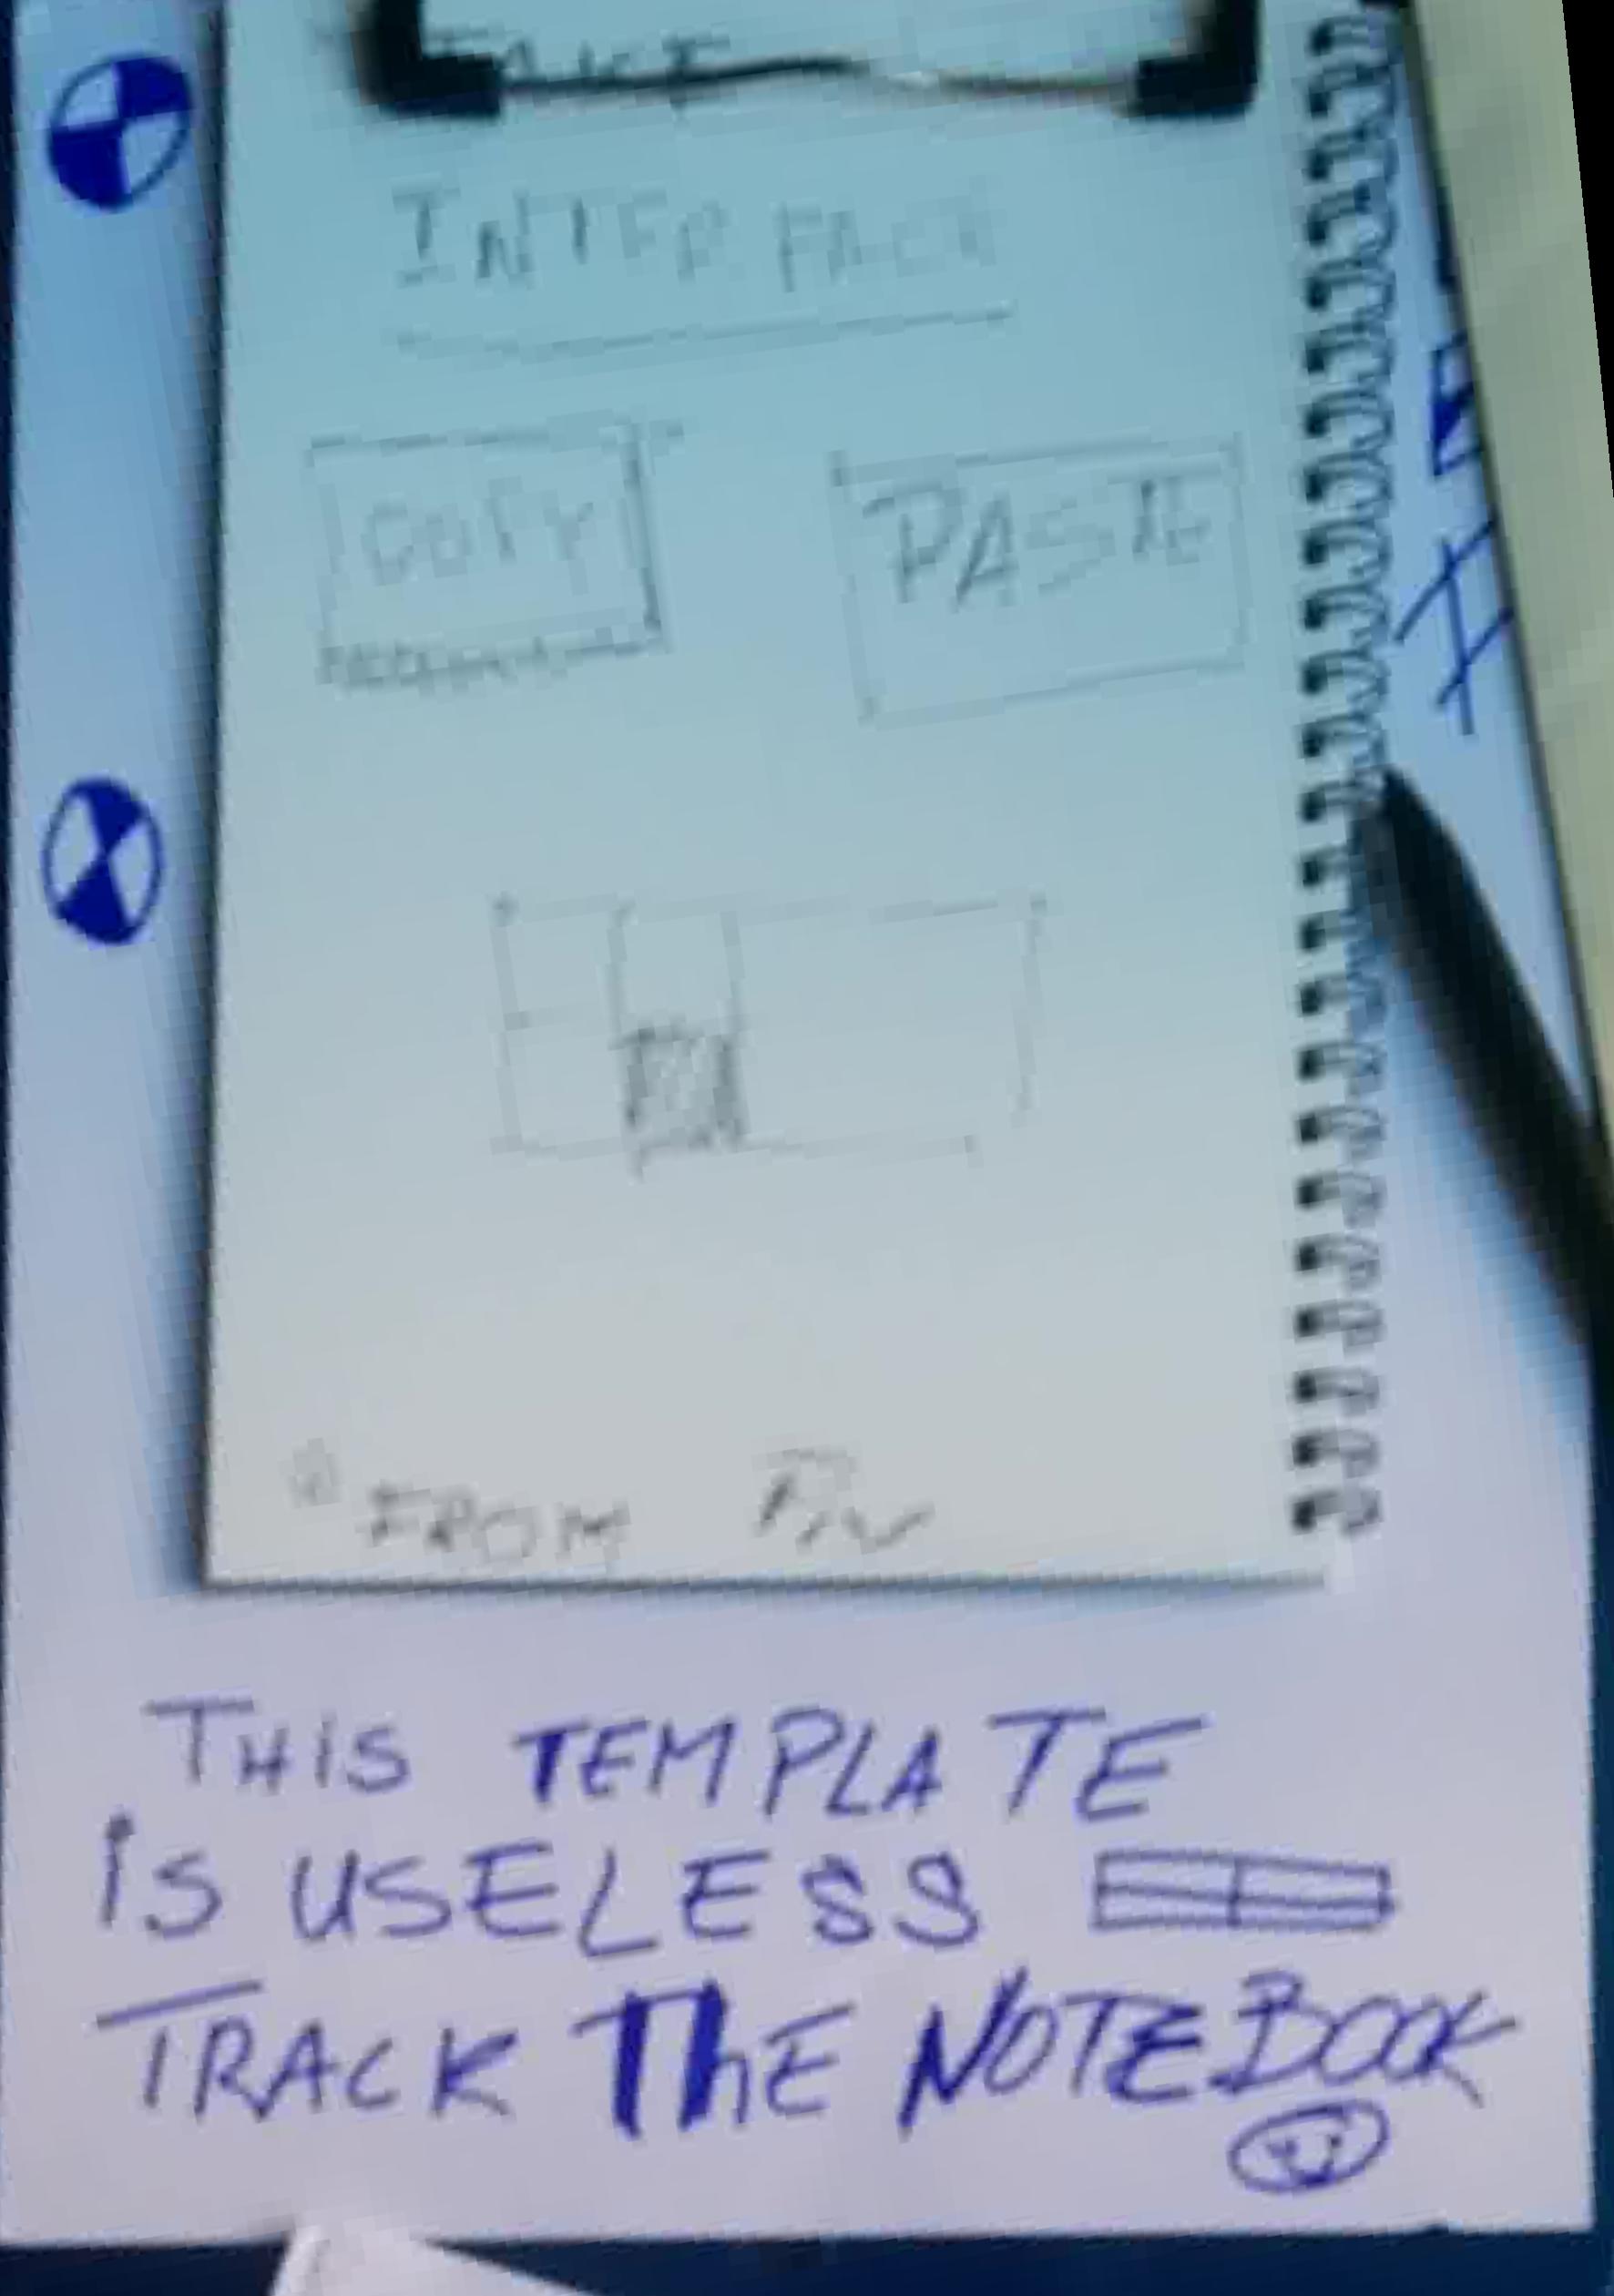 INTERFACE
COPY PASTE
FROM
THIS TEMPLATE
IS USELESS
TRACK THE NOTEBOOK